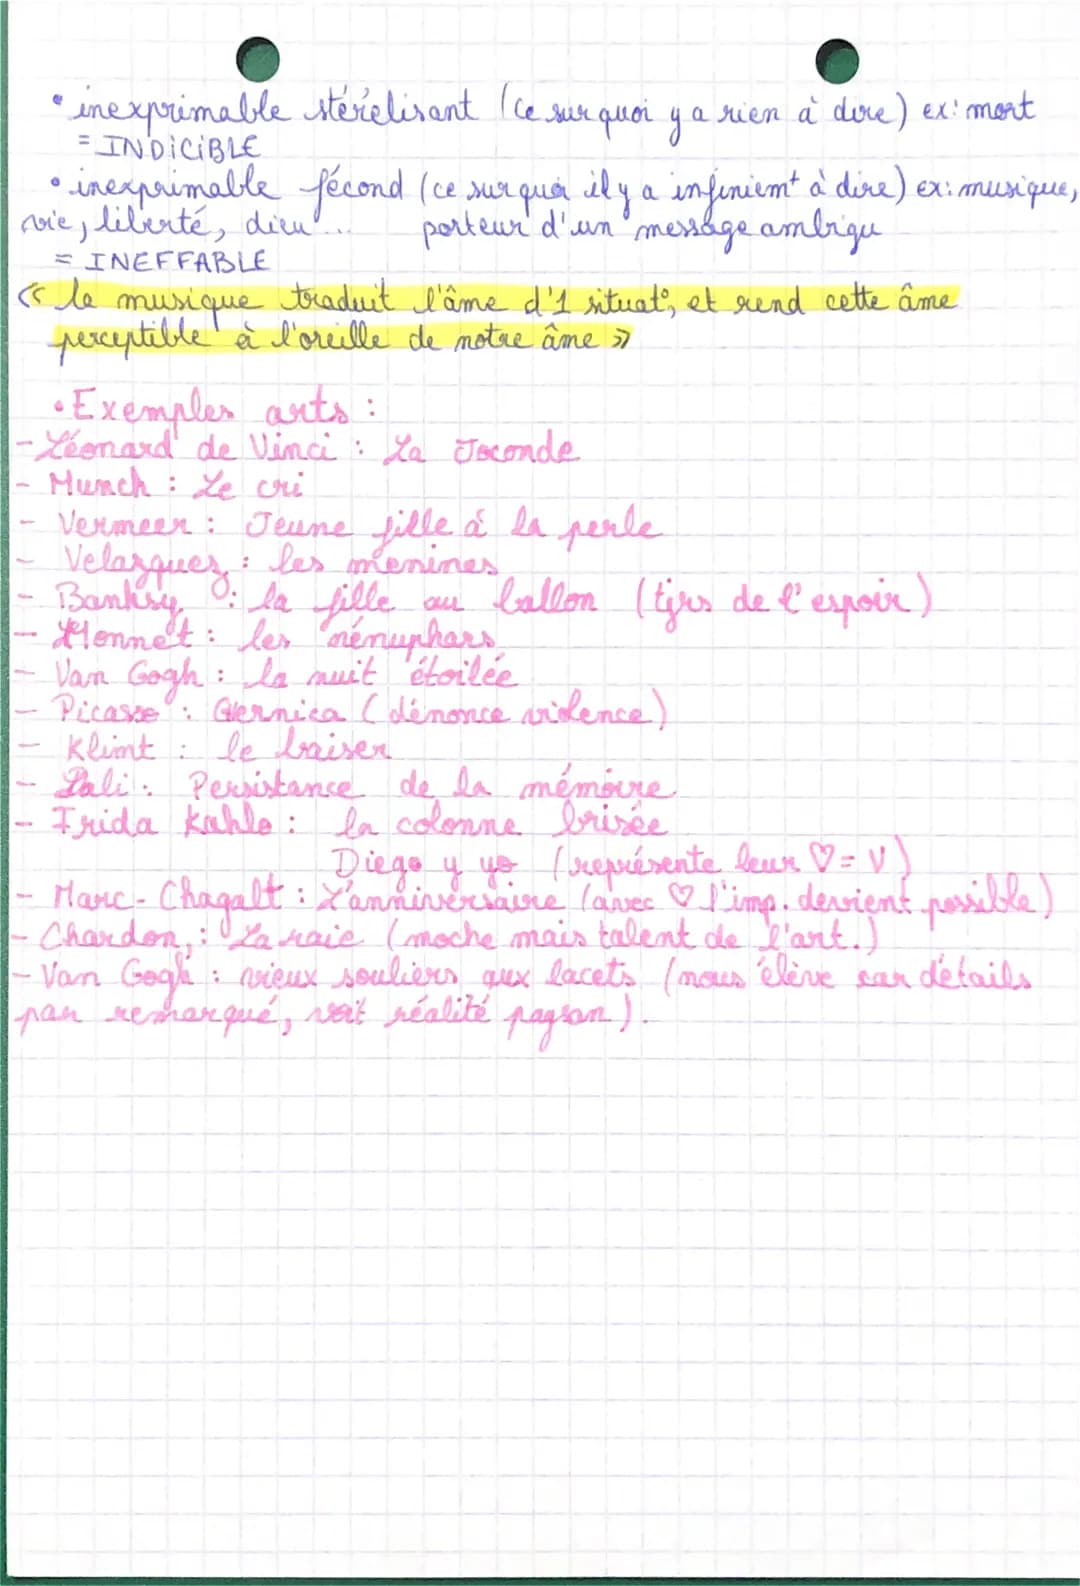 • inexprimable stérélisant (ce sur quoi y a rien à dire) ex: mort
= INDiCiBLE
• inexprimable fécond (ce sur quoi il y a infiniemt à dire) ex: musique,
vie, liberté, dieu... porteur d'un message ambigu
= INEFFABLE
« la musique traduit l'âme d'1 situat°, et rend cette âme
perceptible à l'oreille de notre âme »
• Exemples arts :
- Léonard de Vinci : La Joconde
- Munch : Le cri
- Vermeer : Jeune fille à la perle
- Velazquez : les menines
- Banksy : la fille au ballon (tjrs de l'espoir)
- Monnet : les nénuphars
- Van Gogh : la nuit étoilée
- Picasso : Gernica (dénonce violence)
- Klimt : le baiser
- Dali : Persistance de la mémoire
- Frida Kahlo : la colonne brisée
Diego y yo (représente leur ♡ = V)
- Marc-Chagalt : L'anniversaire (avec ♡ l'imp. devient possible)
- Chardon : La raie (moche mais talent de l'art.)
- Van Gogh : vieux souliers aux lacets (nous élève car détails
pas remarqué, voit réalité paysan).